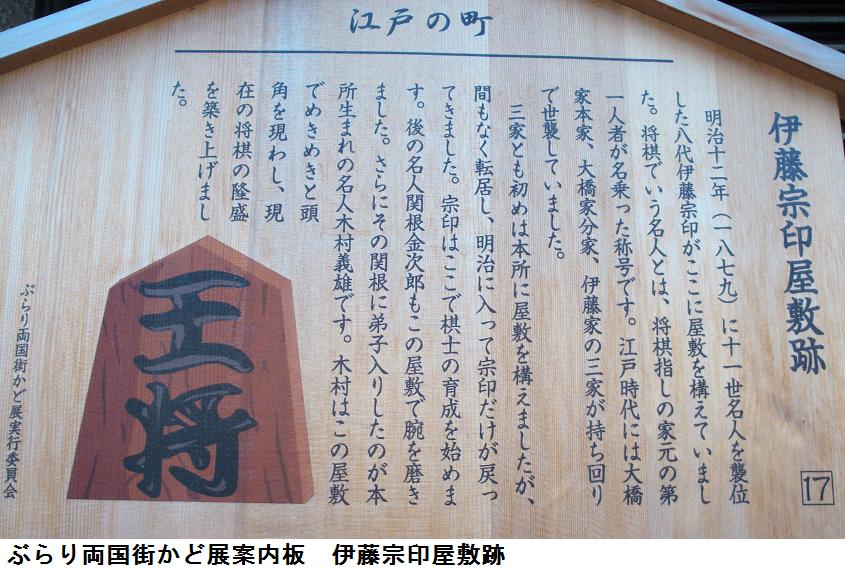 江戸の町
伊藤宗印屋敷跡
17
明治十二年（一八七九）に十一世名人を襲位
した八代伊藤宗印がここに屋敷を構えていまし
た。将棋でいう名人とは、将棋指しの家元の第
一人者が名乗った称号です。江戸時代には大橋
家本家、大橋家分家、伊藤家の三家が持ち回り
で世襲していました。
三家とも初めは本所に屋敷を構えましたが、
間もなく転居し、明治に入って宗印だけが戻っ
てきました。宗印はここで棋士の育成を始めま
す。後の名人関根金次郎もこの屋敷で腕を磨き
ました。さらにその関根に弟子入りしたのが本
所生まれの名人木村義雄です。木村はこの屋敷
でめきめきと頭
角を現わし、現
在の将棋の隆盛
を築き上げまし
た。
王将
ぶらり両国街かど展実行委員会
ぶらり両国街かど展案内板　伊藤宗印屋敷跡